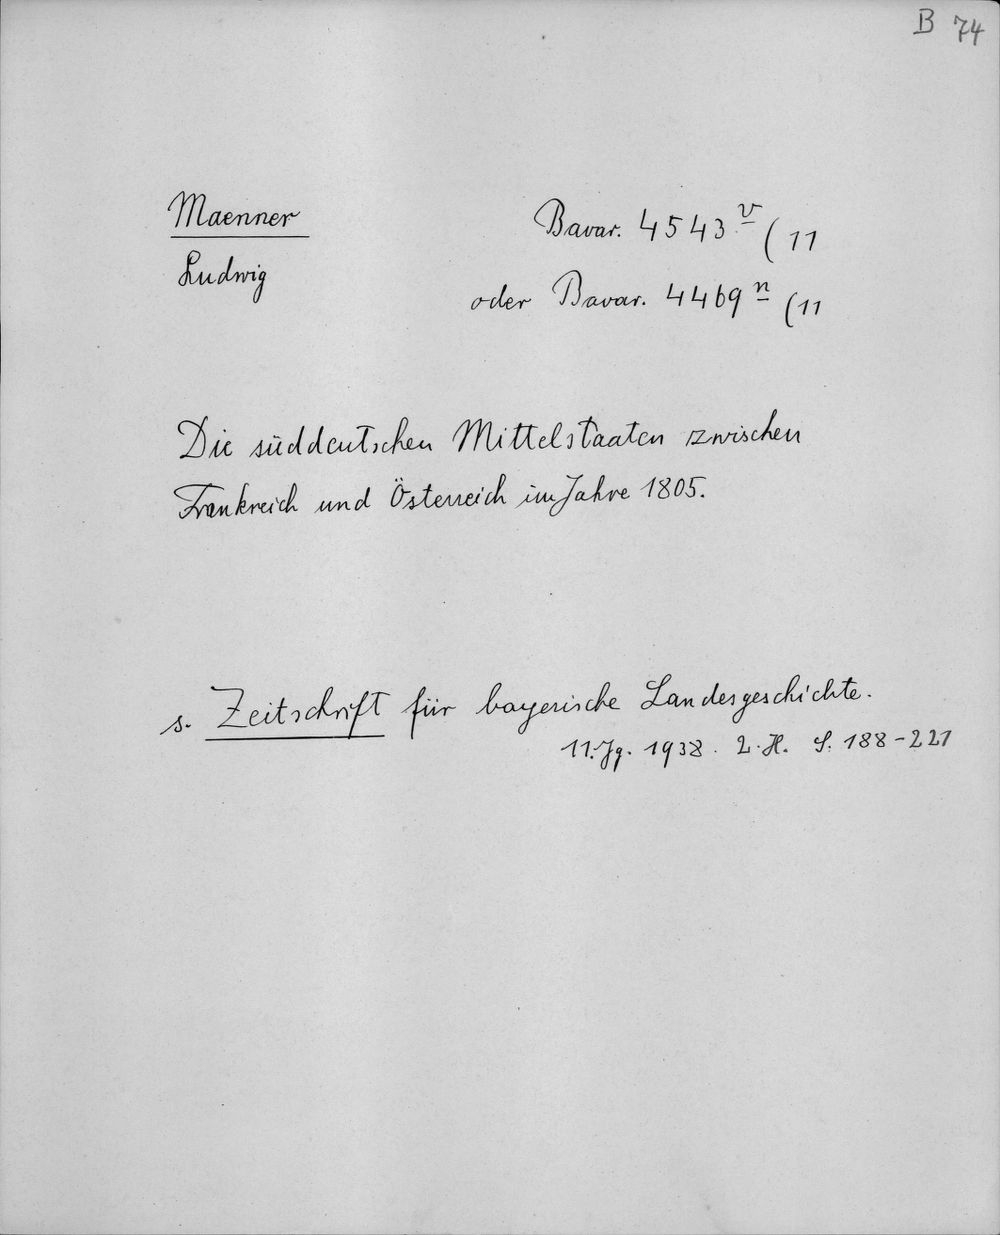 B 74
Maenner
Ludwig
Bavar. 4543 v (11
oder Bavar. 4469 n (11
Die süddeutschen Mittelstaaten zwischen
Frankreich und Österreich im Jahre 1805.
s. Zeitschrift für bayerische Landesgeschichte.
11. Jg. 1938. 2. H. S. 188-221